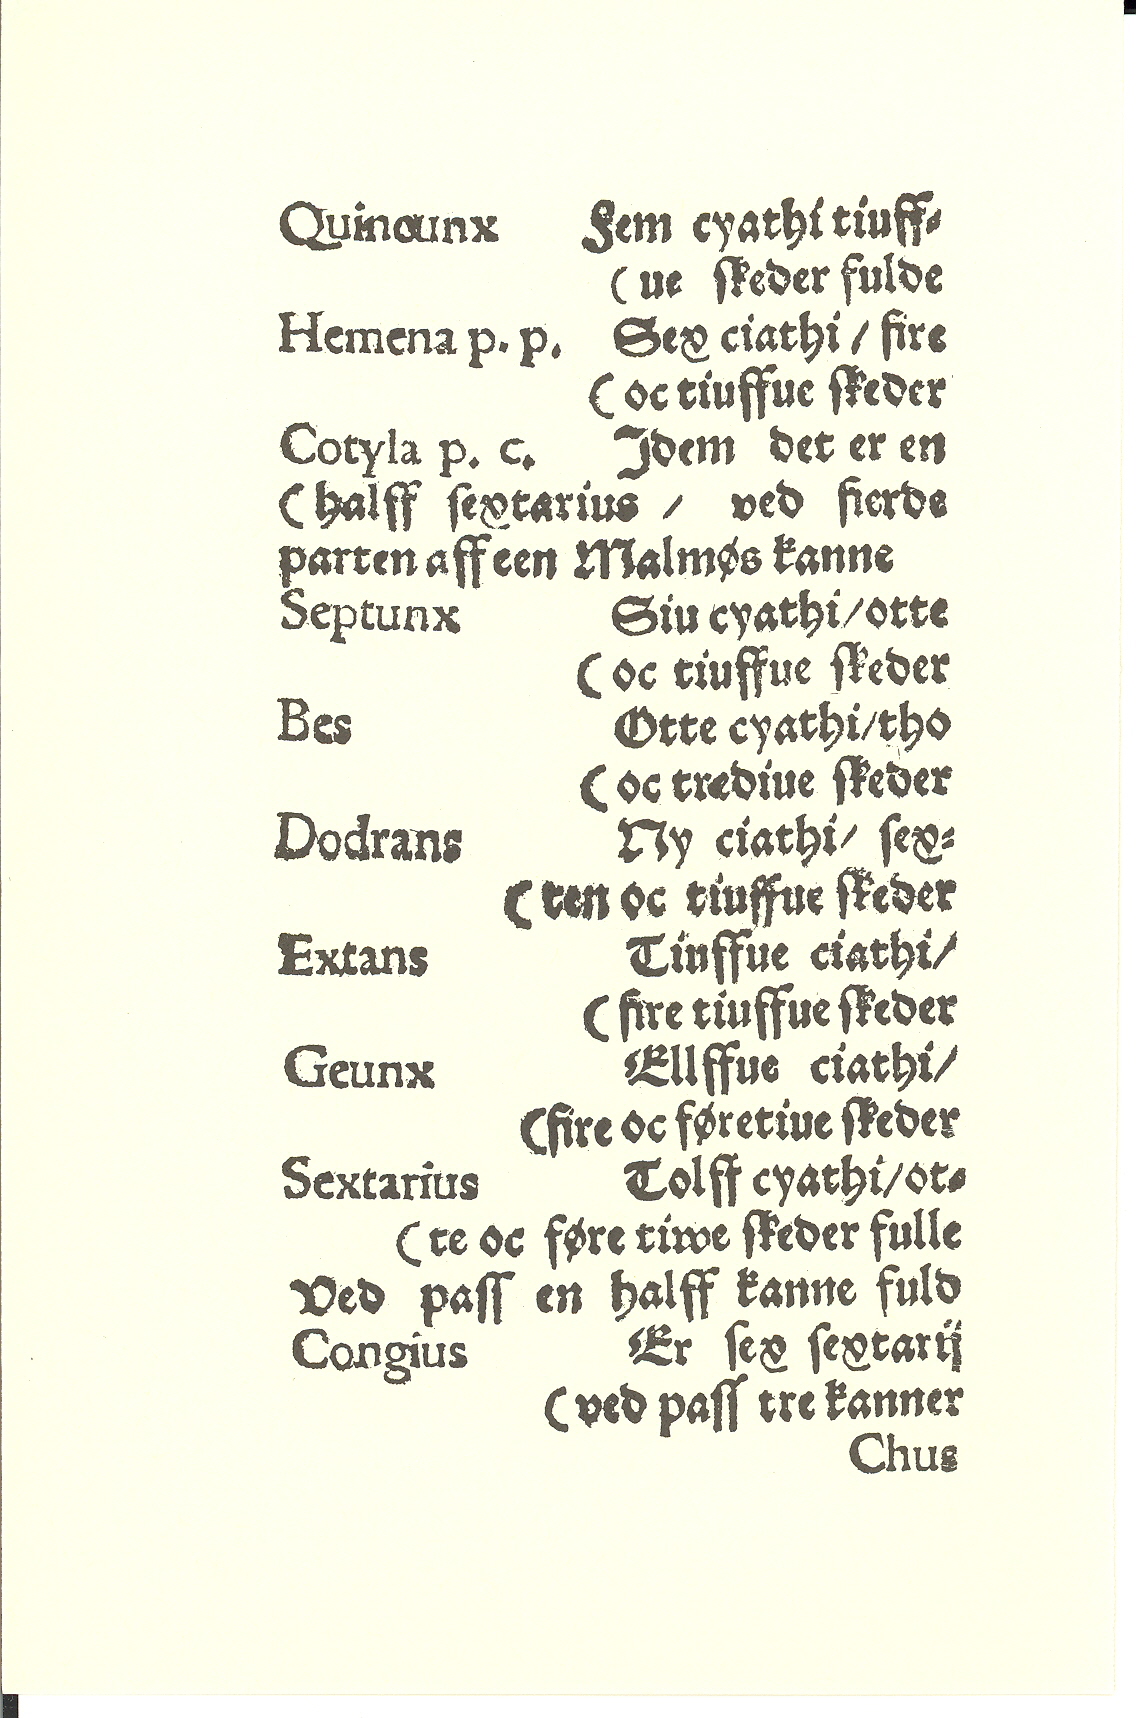 Quincunx Fem cyathi tiuff⸗
( ue skeder fulde
Hemena p. p. Sex ciathi / fire
( oc tiuffue skeder
Cotyla p. c. Idem det er en
( halff sextarius / ved fierde
parten aff een Malmøs kanne
Septunx Siu cyathi/otte
( oc tiuffue skeder
Bes Otte cyathi/tho
( oc trediue skeder
Dodrans Ny ciathi/ sex⸗
( ten oc tiuffue skeder
Extans Tinffue ciathi/
( fire tiuffue skeder
Geunx Ellffue ciathi/
(fire oc føretiue skeder
Sextarius Tolff cyathi/ot⸗
( te oc føre tiwe skeder fulle
Ved pass en halff kanne fuld
Congius Er sex sextarij
( ved pass tre kanner
Chus